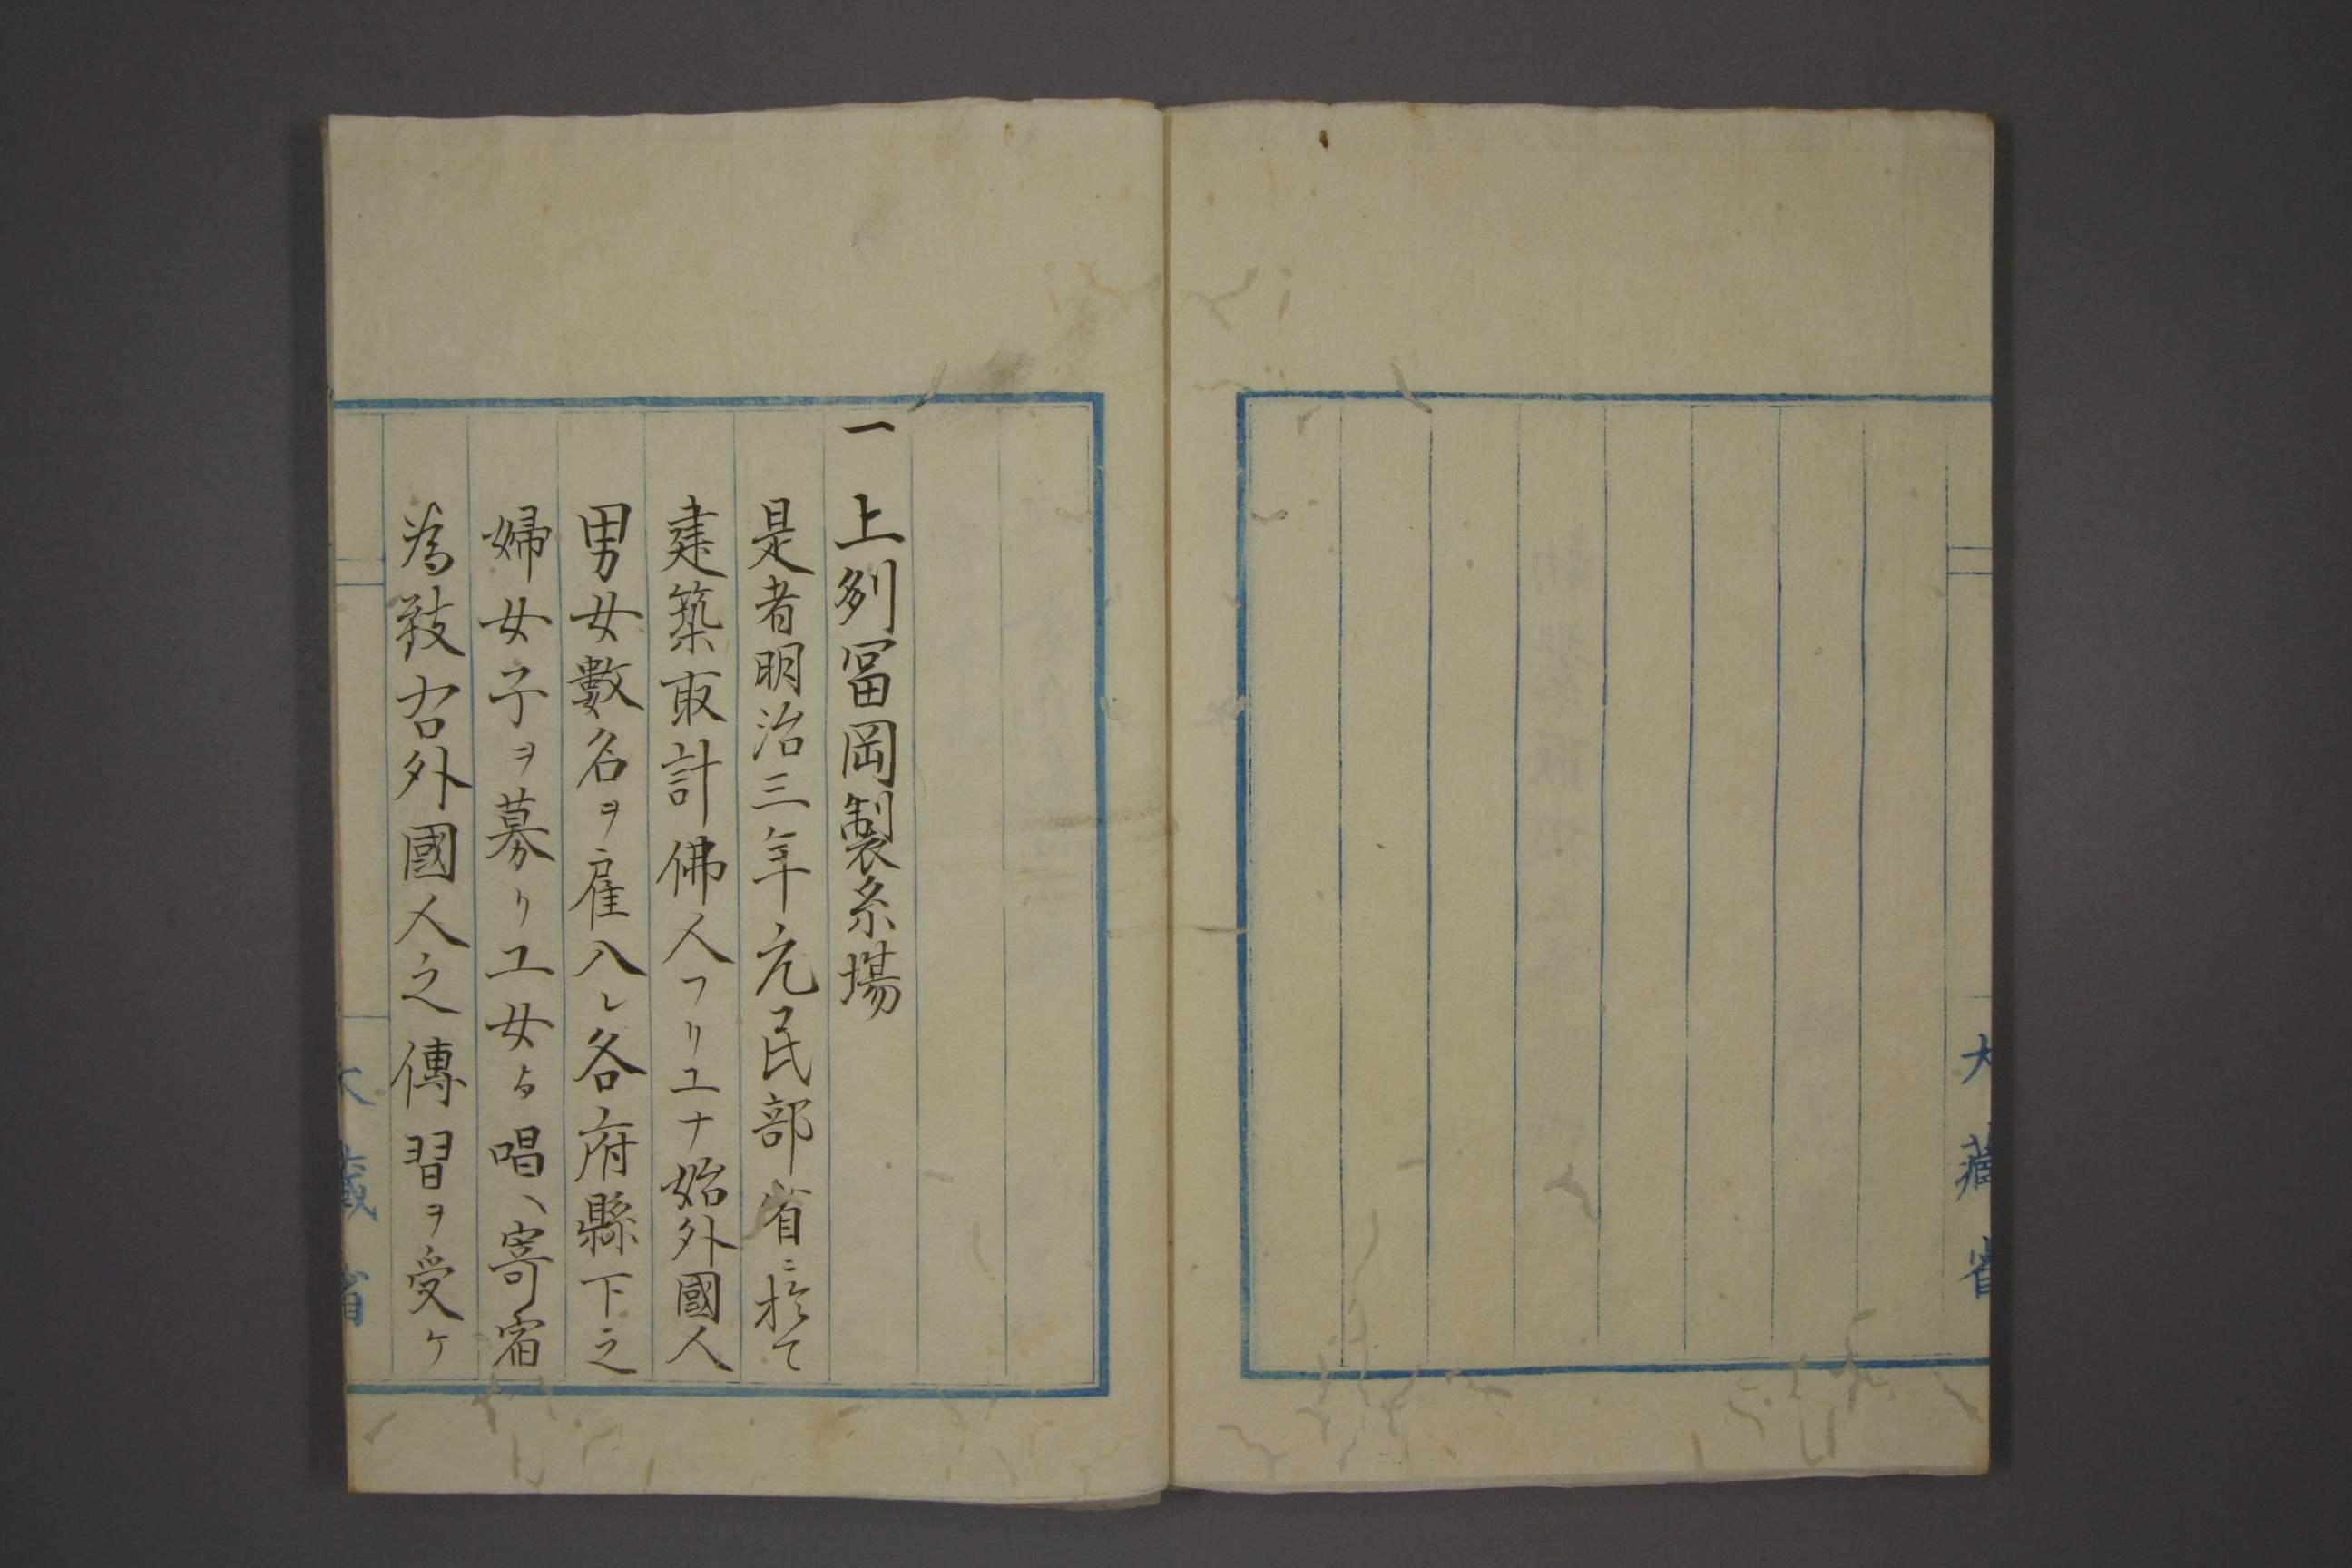 大藏省
一上刕冨岡製糸場
是者明治三年元民部省ニ於て
建築取計佛人フリユナ始外國人
男女數名ヲ雇入レ各府縣下之
婦女子ヲ募リ工女与唱ヘ寄宿
為致右外國人之傳習ヲ受ケ
大藏省